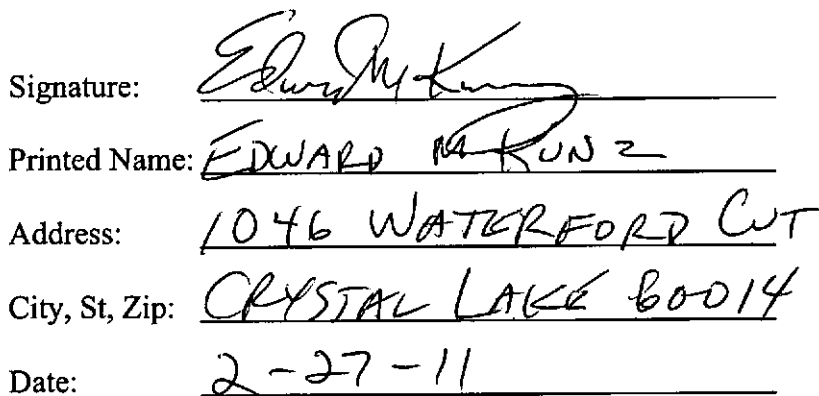 Signature: Edward M Kunz
Printed Name: EDWARD M KUNZ
Address: 1046 WATERFORD CUT
City, St, Zip: CRYSTAL LAKE 60014
Date: 2-27-11